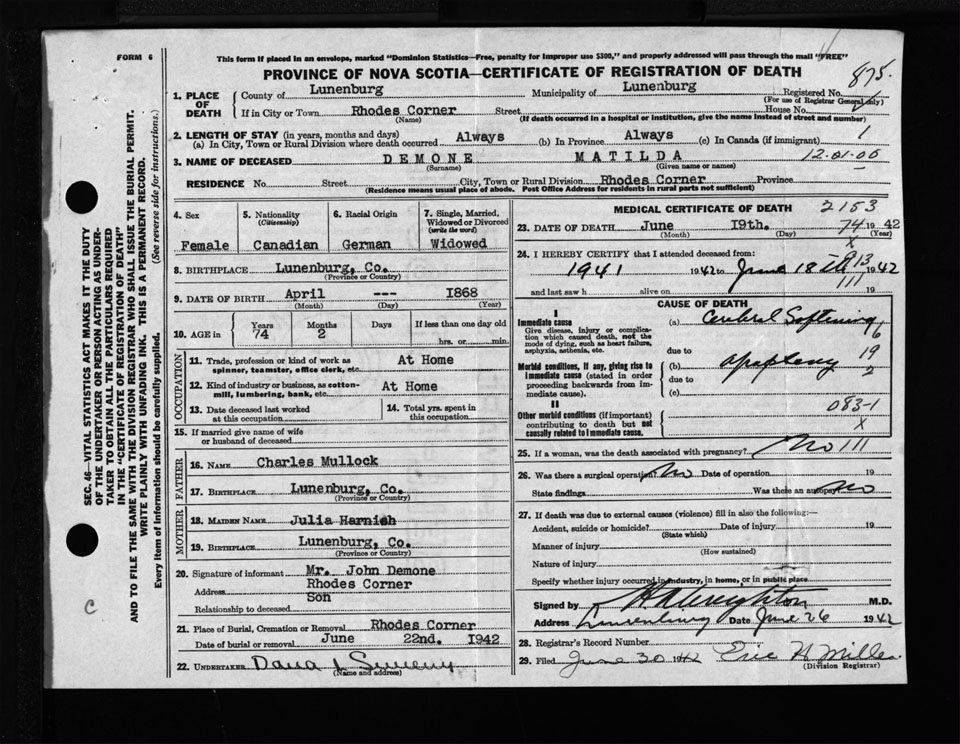 FORM 6
This form if placed in an envelope, marked "Dominion Statistics—Free, penalty for improper use $300," and properly addressed will pass through the mail "FREE"
PROVINCE OF NOVA SCOTIA—CERTIFICATE OF REGISTRATION OF DEATH
875.
1. PLACE OF DEATH
County of Lunenburg Municipality of Lunenburg Registered No.
(For use of Registrar General only)
If in City or Town Rhodes Corner Street House No.
(Name) (If death occurred in a hospital or institution, give the name instead of street and number)
2. LENGTH OF STAY (in years, months and days)
(a) In City, Town or Rural Division where death occurred Always (b) In Province Always (c) In Canada (if immigrant) 1
3. NAME OF DECEASED DEMONE MATILDA 12.01.06
(Surname) (Given name or names)
RESIDENCE No. Street City, Town or Rural Division Rhodes Corner Province
(Residence means usual place of abode. Post Office Address for residents in rural parts not sufficient)
4. Sex Female
5. Nationality (Citizenship) Canadian
6. Racial Origin German
7. Single, Married, Widowed or Divorced (write the word) Widowed
8. BIRTHPLACE Lunenburg, Co.
(Province or Country)
9. DATE OF BIRTH April --- 1868
(Month) (Day) (Year)
10. AGE in Years Months Days If less than one day old
74 2 hrs. or min.
OCCUPATION
11. Trade, profession or kind of work as spinner, teamster, office clerk, etc. At Home
12. Kind of industry or business, as cotton-mill, lumbering, bank, etc. At Home
13. Date deceased last worked at this occupation
14. Total yrs. spent in this occupation
15. If married give name of wife or husband of deceased
FATHER
16. NAME Charles Mullock
17. BIRTHPLACE Lunenburg, Co.
(Province or Country)
MOTHER
18. MAIDEN NAME Julia Harnish
19. BIRTHPLACE Lunenburg, Co.
(Province or Country)
20. Signature of informant Mr. John Demone
Address Rhodes Corner
Relationship to deceased Son
21. Place of Burial, Cremation or Removal Rhodes Corner
Date of burial or removal June 22nd. 1942
22. UNDERTAKER
(Name and address)
MEDICAL CERTIFICATE OF DEATH 2153
23. DATE OF DEATH June 19th. 74 1942
(Month) (Day) x (Year)
24. I HEREBY CERTIFY that I attended deceased from: 813
1941 1942 to June 18th 1942
and last saw h alive on 111 19
CAUSE OF DEATH
I
Immediate cause
Give disease, injury or complication which caused death, not the mode of dying, such as heart failure, asphyxia, asthenia, etc.
(a) Cerebral Softening
16
due to
19
Morbid conditions, if any, giving rise to immediate cause (stated in order proceeding backwards from immediate cause).
(b) apoplexy
2
due to
(c)
II
083-1
Other morbid conditions (if important) contributing to death but not causally related to immediate cause.
x
25. If a woman, was the death associated with pregnancy? No 111
26. Was there a surgical operation? No Date of operation 19
State findings Was there an autopsy No
27. If death was due to external causes (violence) fill in also the following:—
Accident, suicide or homicide? Date of injury 19
(State which)
Manner of injury
(How sustained)
Nature of injury
Specify whether injury occurred in industry, in home, or in public place
Signed by M.D.
Address Lunenburg Date June 26 1942
28. Registrar's Record Number
29. Filed June 30 1942 Eric H Miller
(Division Registrar)
SEC. 46—VITAL STATISTICS ACT MAKES IT THE DUTY
OF THE UNDERTAKER OR PERSON ACTING AS UNDER-
TAKER TO OBTAIN ALL THE PARTICULARS REQUIRED
IN THE "CERTIFICATE OF REGISTRATION OF DEATH"
AND TO FILE THE SAME WITH THE DIVISION REGISTRAR WHO SHALL ISSUE THE BURIAL PERMIT.
WRITE PLAINLY WITH UNFADING INK. THIS IS A PERMANENT RECORD.
Every item of information should be carefully supplied. (See reverse side for instructions.)
C